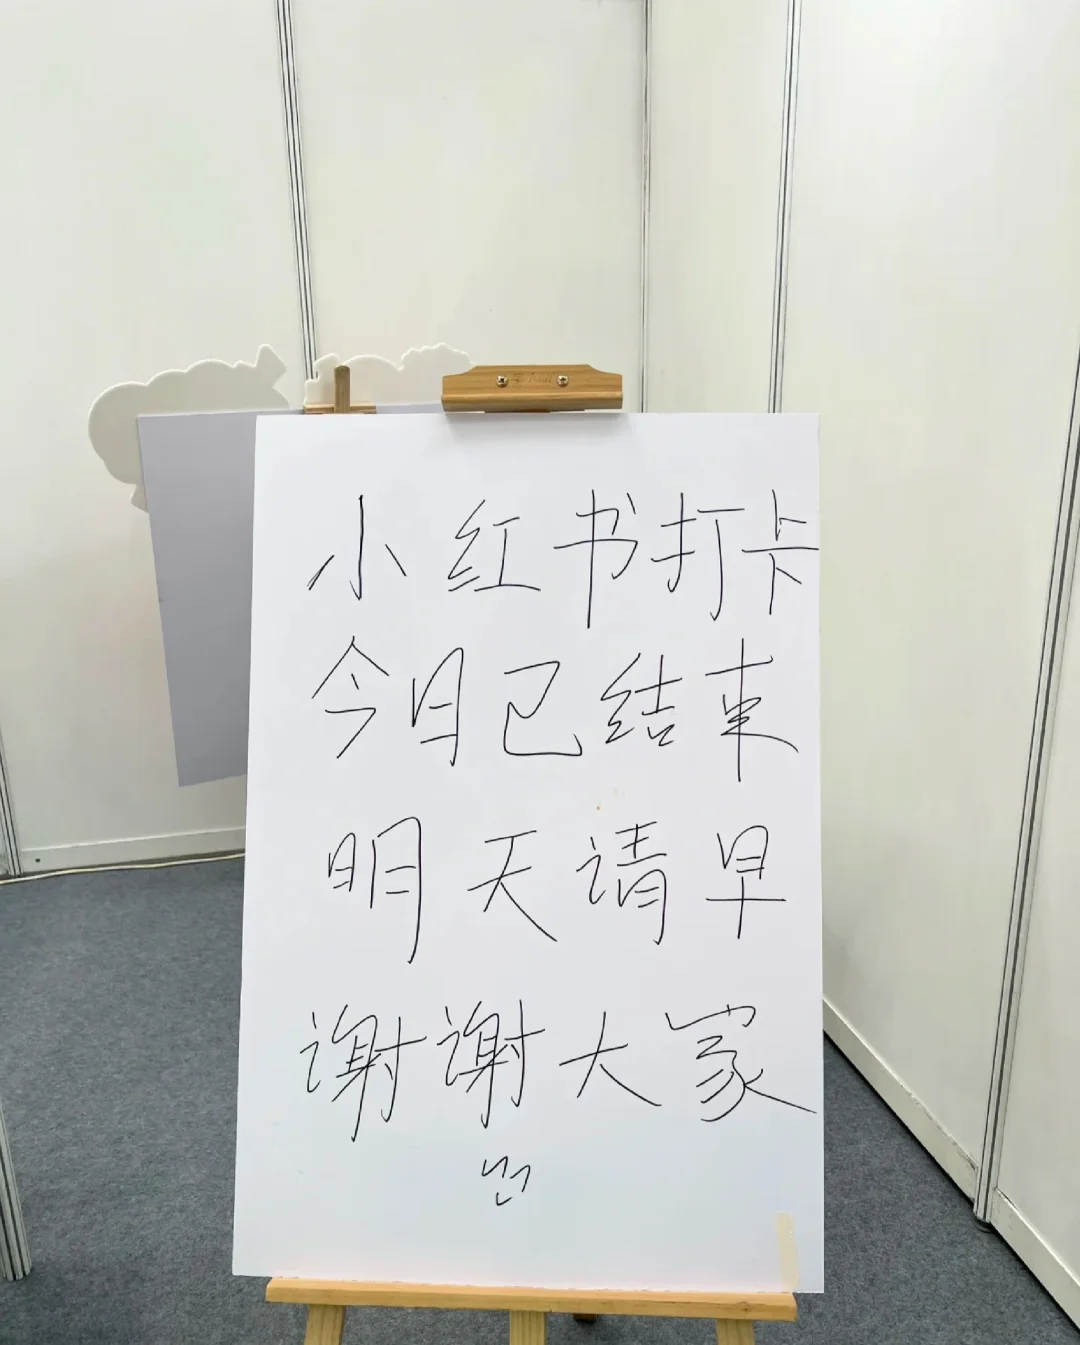 小红书打卡
今日已结束
明天请早
谢谢大家